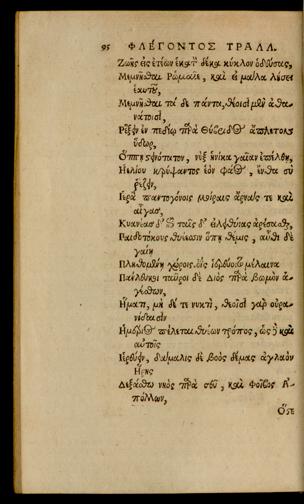 95 ΦΛΕΓΟΝΤΟΣ ΤΡΑΛΛ.
Ζωῆς εἰς ἐτέων ἑκατὸν δέκα κύκλον ὁδεύσας,
Μεμνῆσθαι Ῥωμαῖε, καὶ εἰ μάλα λήσει
ἑαυτοῦ,
Μεμνῆσθαι τάδε πάντα, θεοῖσι μὲν ἀθα
νάτοισι,
Ῥέζειν ἐν πεδίῳ παρὰ Θύβριδος ἄπλετον
ὕδωρ,
Ὅππη στεινότατον, νὺξ ἡνίκα γαῖαν ἐπέλθῃ,
Ἠελίου κρύψαντος ἑὸν φάος, ἔνθα σὺ
ῥέζειν,
Ἱερὰ παντογόνοις μοίραις ἄρνας τε καὶ
αἶγας,
Κυανέας δ' ἐπὶ ταῖς δ' εἰλειθυίας ἀρέσασθαι,
Παιδοτόκους θυέεσσιν ὅππη θέμις, αὖθι δὲ
γαίῃ
Πληθομένη χοίροις ὗς ἱερεύοιτο μέλαινα
Πανλευκοι ταῦροι δὲ Διὸς παρὰ βωμὸν ἀ-
γέσθων,
Ἤματι, μὴ δέ τι νυκτὶ, θεοῖσι γὰρ οὐρα
νίοισιν
Ἡμέριος πέλεται θυέων τρόπος, ὣς δὲ καὶ
αὐτοῖς
Ἱερεύειν, δαμάλης δὲ βοὸς δέμας ἀγλαὸν
Ἥρης
Δεξάσθω νηὸς παρὰ σεῦ, καὶ Φοῖβος Ἀ-
πόλλων,
Ὅστε